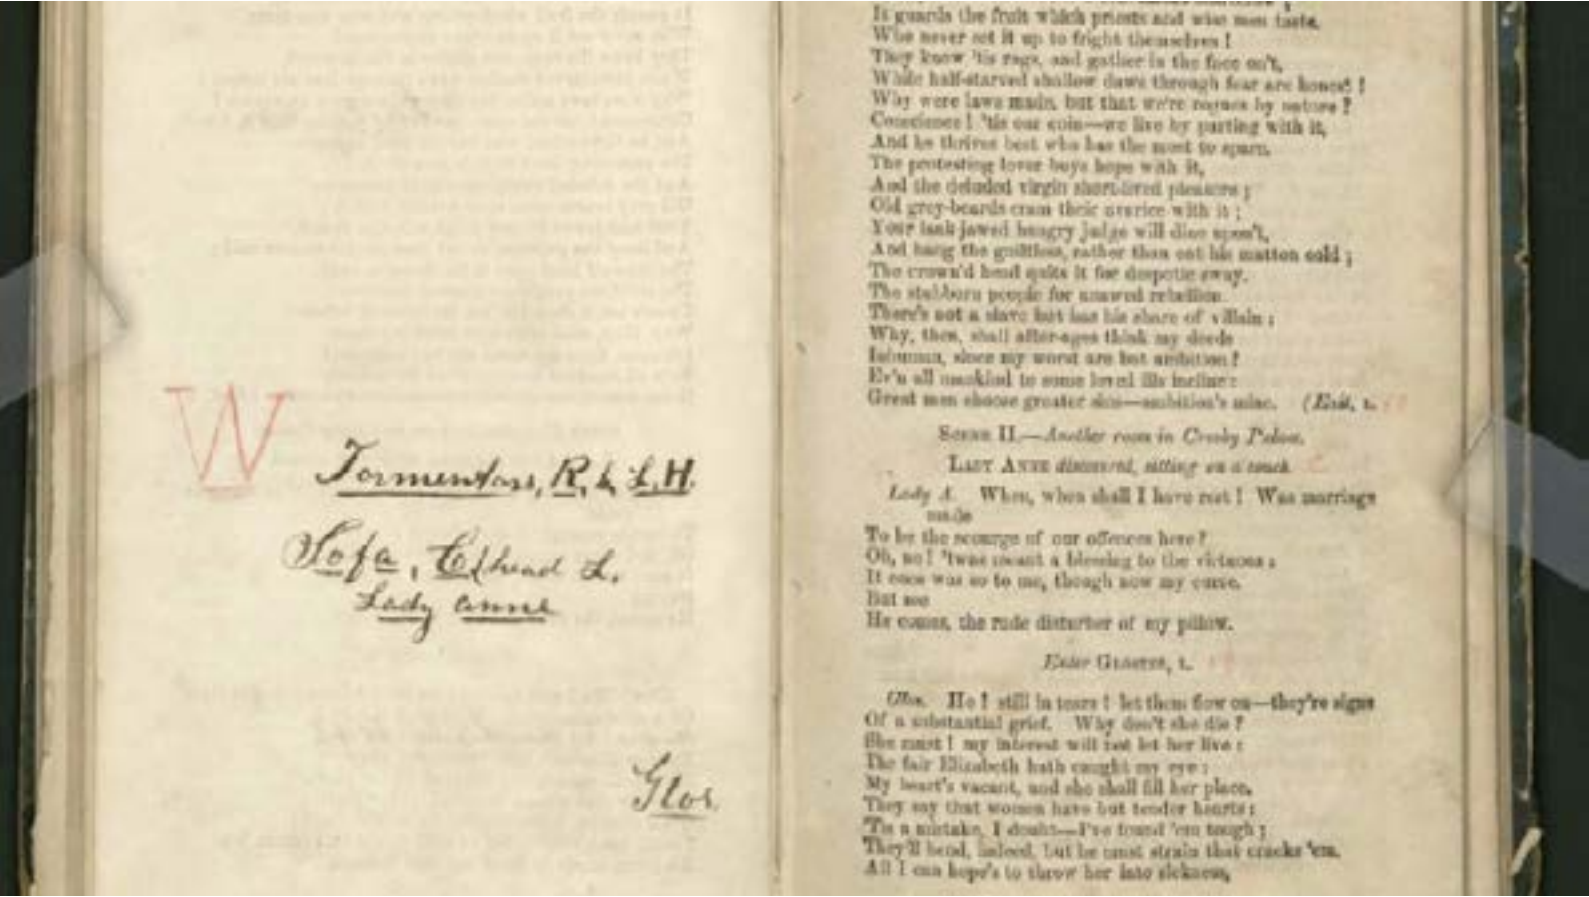 W
Tormentors, R. & L.H.
Sofa, C/head L.
Lady Anne
Glos.
It guards the fruit which priests and wise men taste,
Who never set it up to fright themselves!
They know 'tis rags, and gather in the face on't,
While half-starved shallow daws through fear are honest!
Why were laws made, but that we're rogues by nature?
Conscience! 'tis our coin—we live by parting with it,
And he thrives best who has the most to spare.
The protesting lover buys hope with it,
And the deluded virgin short-lived pleasure;
Old grey-beards cram their avarice with it;
Your lank-jawed hungry judge will dine upon't,
And hang the guiltless, rather than eat his mutton cold;
The crown'd head quits it for despotic sway,
The stubborn people for unawed rebellion.
There's not a slave but has his share of villain;
Why, then, shall after-ages think my deeds
Inhuman, since my worst are but ambition?
Ev'n all mankind to some loved ills incline:
Great men choose greater sins—ambition's mine. (Exit, L.
SCENE II.—Another room in Crosby Palace.
LADY ANNE discovered, sitting on a couch
Lady A. When, when shall I have rest! Was marriage
made
To be the scourge of our offences here?
Oh, no! 'twas meant a blessing to the virtuous;
It once was so to me, though now my curse.
But see
He comes, the rude disturber of my pillow.
Enter GLOSTER, L.
Glos. Ha! still in tears! let them flow on—they're signs
Of a substantial grief. Why don't she die?
She must! my interest will not let her live:
The fair Elizabeth hath caught my eye;
My heart's vacant, and she shall fill her place.
They say that women have but tender hearts:
'Tis a mistake, I doubt—I've found 'em tough;
They'll bend, indeed, but he must strain that cracks 'em.
All I can hope's to throw her into sickness,